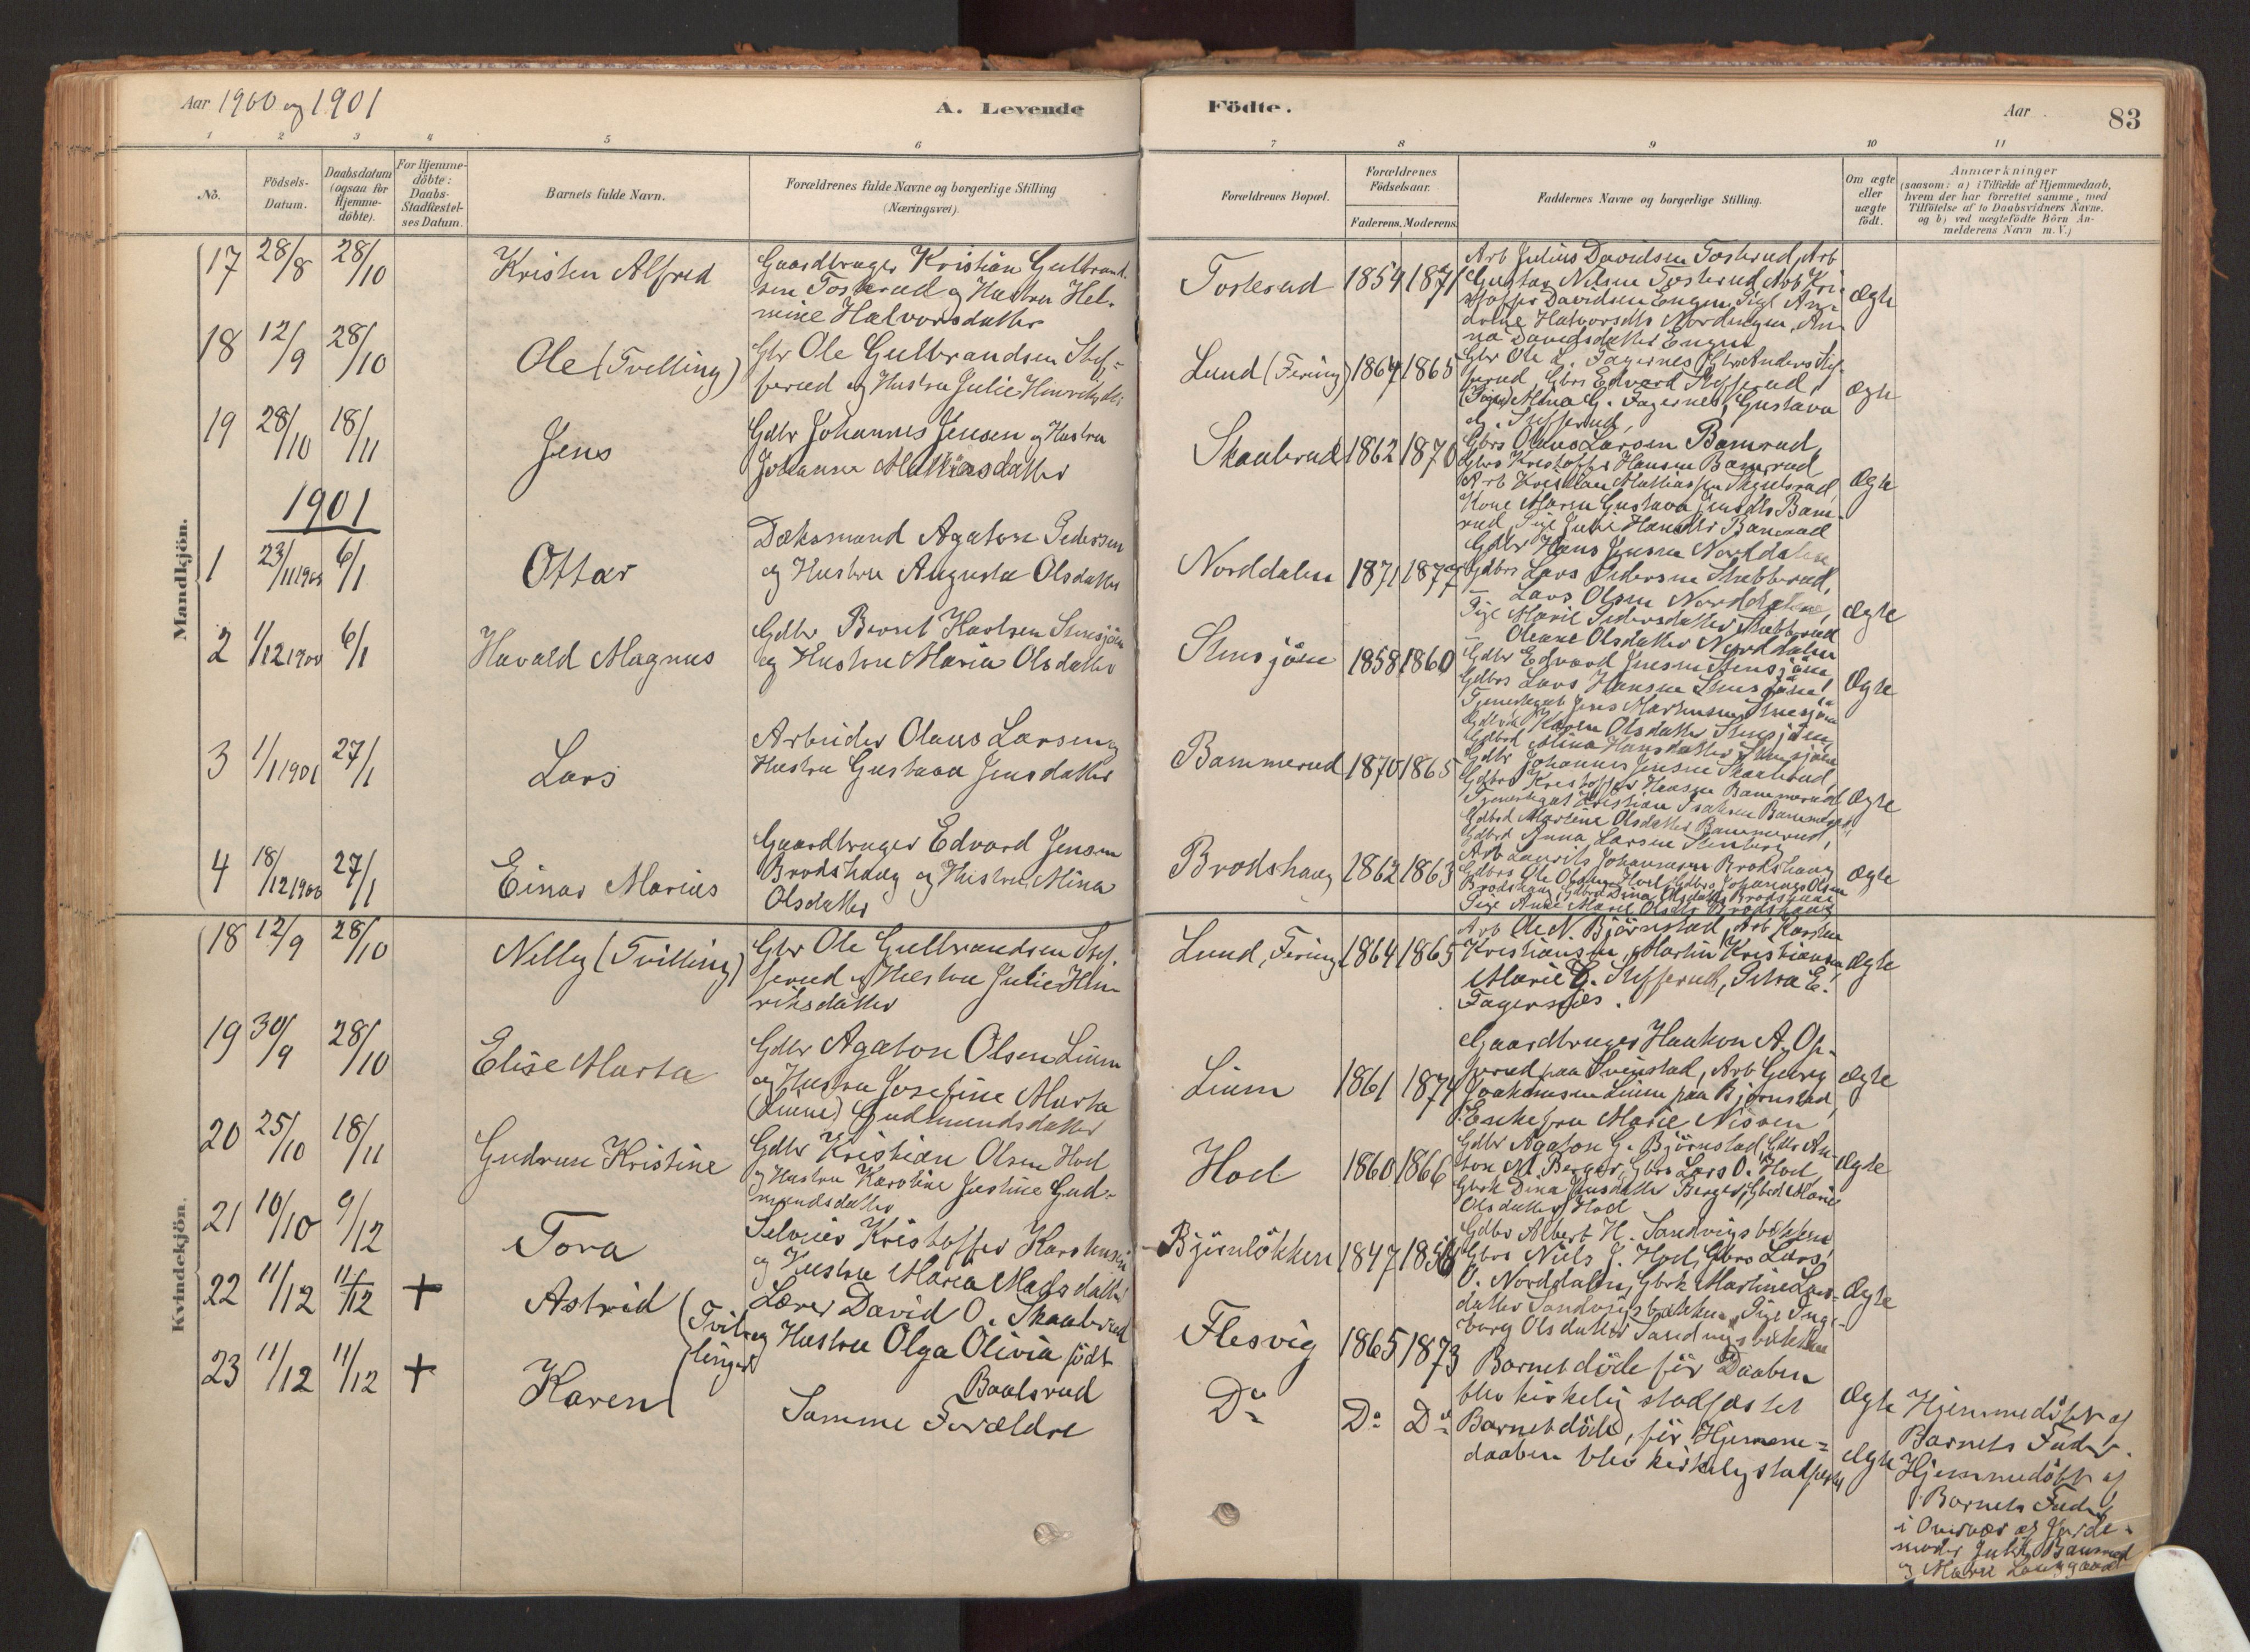 Aar 1900 og 1901
A. Levende
Födte.
Aar
83
1 2 3 4 5 6 7 8 9 10 11
No.
Födsels-
Datum.
Daabsdatum
(ogsaa for
Hjemme-
döbte).
For Hjemme-
döbte:
Daabs-
Stadfæstel-
ses Datum.
Barnets fulde Navn.
Forældrenes fulde Navne og borgerlige Stilling
(Næringsvei).
Forældrenes Bopæl.
Forældrenes
Födselsaar.
Faderens. Moderens.
Faddernes Navne og borgerlige Stilling.
Om ægte
eller
uægte
födt.
Anmærkninger
(saasom: a) i Tilfælde af Hjemmedaab,
hvem der har forrettet samme, med
Tilföielse af to Daabsvidners Navne,
og b) ved uægtefödte Börn An-
melderens Navn m. V.)
Mandkjön.
17 28/8 28/10 Kristen Alfred
Gaardbruger Kristian Gulbrand-
sen Tosterud og Hustru Hel-
mine Halvorsdatter
Tosterud 1854 1871
Arb Julius Davidsen Tosterud, Arb
Gustav Nilsen Tosterud, Arb Kri-
stoffer Davidsen Engen, Pige An-
drine Halvorsdtr Nordengen, An-
na Davidsdatter Engen
Ægte
18 12/9 28/10 Ole (Tvilling)
Gbr Ole Gulbrandsen Stef-
ferud og Hustru Julie Henriksdtr
Lund (Fering) 1864 1865
Gbr Ole L. Fagernes, Gbr Anders Stef-
ferud, Gbrs Edvard Stefferud,
(Pige) Mina G. Fagernes, Gustava
G. Stefferud,
Ægte
19 28/10 18/11 Jens
Gdbr Johannes Jensen og Hustru
Johanne Mathiasdatter
Skaubrud 1862 1870
Gbrs Olaus Larsen Bamrud,
Gbrs Kristoffer Hansen Bamrud
Arb Kristian Mathiassen
Kone Maren Gustava Jensdtr Bam-
rud, Pige Julie Hansdtr Bamrud
Ægte
1901
1 23/11 1900 6/1 Ottar
Dæksmand Agaton Pedersen
og Hustru Augusta Olsdatter
Norddalen 1871 1877
Gdbr Hans Jensen Norddalen
Gdbrs Lars Pedersen Stubberud,
– Lars Olsen Norddalen,
Pige Marie Pedersdatter Stubberud
– Oleane Olsdatter Norddalen
Ægte
2 1/12 1900 6/1 Harald Magnus
Gdbr Bernt Karlsen Stensjøen
og Hustru Maria Olsdatter
Stensjøen 1858 1860
Gdbr Edvard Jensen Stensjøen
Gdbrs Lars Hansen Stensjøen,
Tjenestegut Jens Martinsen Stensjøen
Gdbrd Karen Olsdatter Stensjøen,
Gdbrd Mina Hansdatter Stensjøen
Ægte
3 1/1 1901 27/1 Lars
Arbeider Olaus Larsen og
Hustru Gustava Jensdatter
Bammerud 1870 1865
Gdbr Johannes Jensen Skaubrud,
Gdbrs Kristoffer Hansen Bammerud
Tjenestegut Kristian Isaksen Bammerud
Gdbrd Martine Olsdatter Bammerud,
Gdbrd Anna Larsen Stenberg
Ægte
4 18/12 1900 27/1 Einar Marius
Gaardbruger Edvard Jensen
Brodshaug og Hustru Mina
Olsdatter
Brodshaug 1862 1863
Arb Laurits Johannesen Brodshaug
Gdbrs Ole Olsen Hoel, Gdbrs Johannes Olsen
Brodshaug, Gdbrd Dina Olsdatter Brodshaug
Pige Anne Marie Olsdtr Brodshaug
Ægte
Kvindekjön.
18 12/9 28/10 Nelly (Tvilling)
Gbr Ole Gulbrandsen Stef-
ferud og Hustru Julie Hen-
riksdatter
Lund, Fering 1864 1865
Arb Ole N. Björnstad, Arb Karsten
Kristiansen, Martin Kristiansen
Marie G. Stefferud, Petra E.
Fagernes.
Ægte
19 30/9 28/10 Elise Marta
Gdbr Agaton Olsen Lium
og Hustru Josefine Marta
(Linne) Gudmundsdatter
Lium 1861 1874
Gaardbruger Haakon A. Op-
perud paa Svinstad, Arb Georg
Joakimsen Lium paa Bjørnstad,
Enkefru Marie Nissen
Ægte
20 25/10 18/11 Gudrun Kristine
Gdbr Kristian Olsen Hod
og Hustru Karoline Justine Gud-
mundsdatter
Hod 1860 1866
Gdbr Agaton G. Björnstad, Gdbr An-
ton M. Berger, Gbrs Lars O. Hod,
Gbrk Dina Jensdatter Berger, Gbrd Marie
Olsdatter Hod
Ægte
21 10/10 9/12 Tora
Selveier Kristoffer Karstensen
og Hustru Maria Madsdatter
Bjørnløkken 1847 1856
Gdbr Albert H. Sandvigsbakken
Gbrs Niels J. Hod, Gbrs Lars
O. Norddalen, Gbrk Martine Lars-
datter Sandvigsbakken, Pige Inge-
borg Olsdatter Sandvigsbakken
Ægte
22 11/12 11/12 + Astrid (Tvil-
Lærer David O. Skaubrud
og Hustru Olga Olivia født
Baalsrud
Flesvig 1865 1873
Barnet döde för Daaben
blev kirkelig stadfæstet
Ægte
Hjemmedöbt af
Barnets Fader.
23 11/12 11/12 + Karen (linger)
Samme Forældre
Do Do Do
Barnet döde, för Hjemme-
daaben blev kirkelig stadfæstet
Ægte
Hjemmedöbt af
Barnets Fader
i Overvær af Jorde-
moder Julie Bamrud
og Marie Langgaard